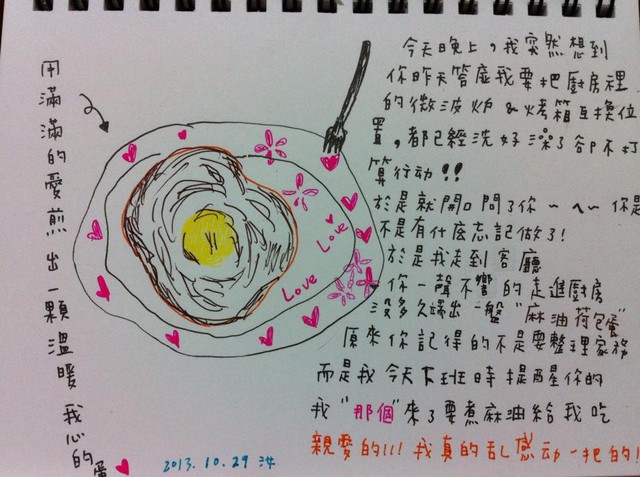 用滿滿的愛煎出一顆溫暖我心的蛋
今天晚上，我突然想到
你昨天答應我要把廚房裡
的微波炉&烤箱互換位
置，都已經洗好澡了卻不打
算行动!!
於是就開口問了你～へ～ 你是
不是有什么忘記做了!
於是我走到客廳
你一聲不響的走進廚房
沒多久端出一盤"麻油荷包蛋"
原來你記得的不是要整理家務
而是我今天下班時提醒你的
我"那個"來了要煮麻油給我吃
親愛的!!! 我真的乱感动一把的!
Love Love
2013.10.29